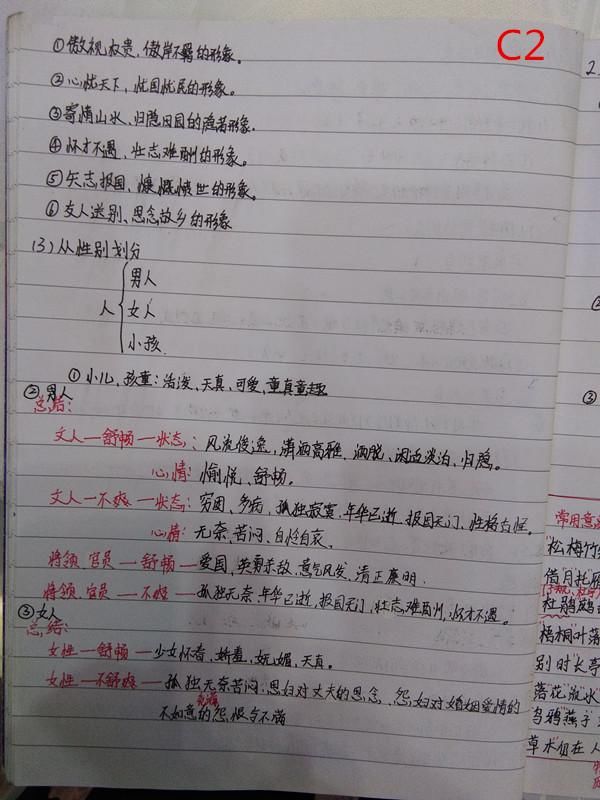 C2
①傲视权贵、傲岸不羁的形象。
②心忧天下、忧国忧民的形象。
③寄情山水、归隐田园的隐者形象.
④怀才不遇、壮志难酬的形象。
⑤矢志报国、慷慨愤世的形象。
⑥友人送别、思念故乡的形象
(3)从性别划分
人
男人
女人
小孩
①小儿、孩童：活泼、天真、可爱、童真童趣
②男人
总结：
文人—舒畅—状态：风流俊逸，潇洒高雅、洒脱、闲适淡泊、归隐。
心情：愉悦、舒畅。
文人—不爽—状态：穷困、多病、孤独寂寞、年华已逝、报国无门、性格古怪。
心情：无奈、苦闷、自怜自哀、
将领、官员—舒畅—爱国、英勇杀敌、意气风发、清正廉明.
将领、官员—不爽—孤独无奈、年华已逝、报国无门、壮志难酬、怀才不遇。
③女人
总结：
女性—舒畅—少女怀春、娇羞、妩媚、天真。
女性—不舒爽—孤独无奈苦闷：思妇对丈夫的思念、怨妇对婚姻爱情的
不如意的怨恨与不满
2
②
③
常用意
松梅竹
借月托雁
杜鹃鹧
梧桐叶落
别时长亭
落花流水
乌鸦燕子
草木但在人